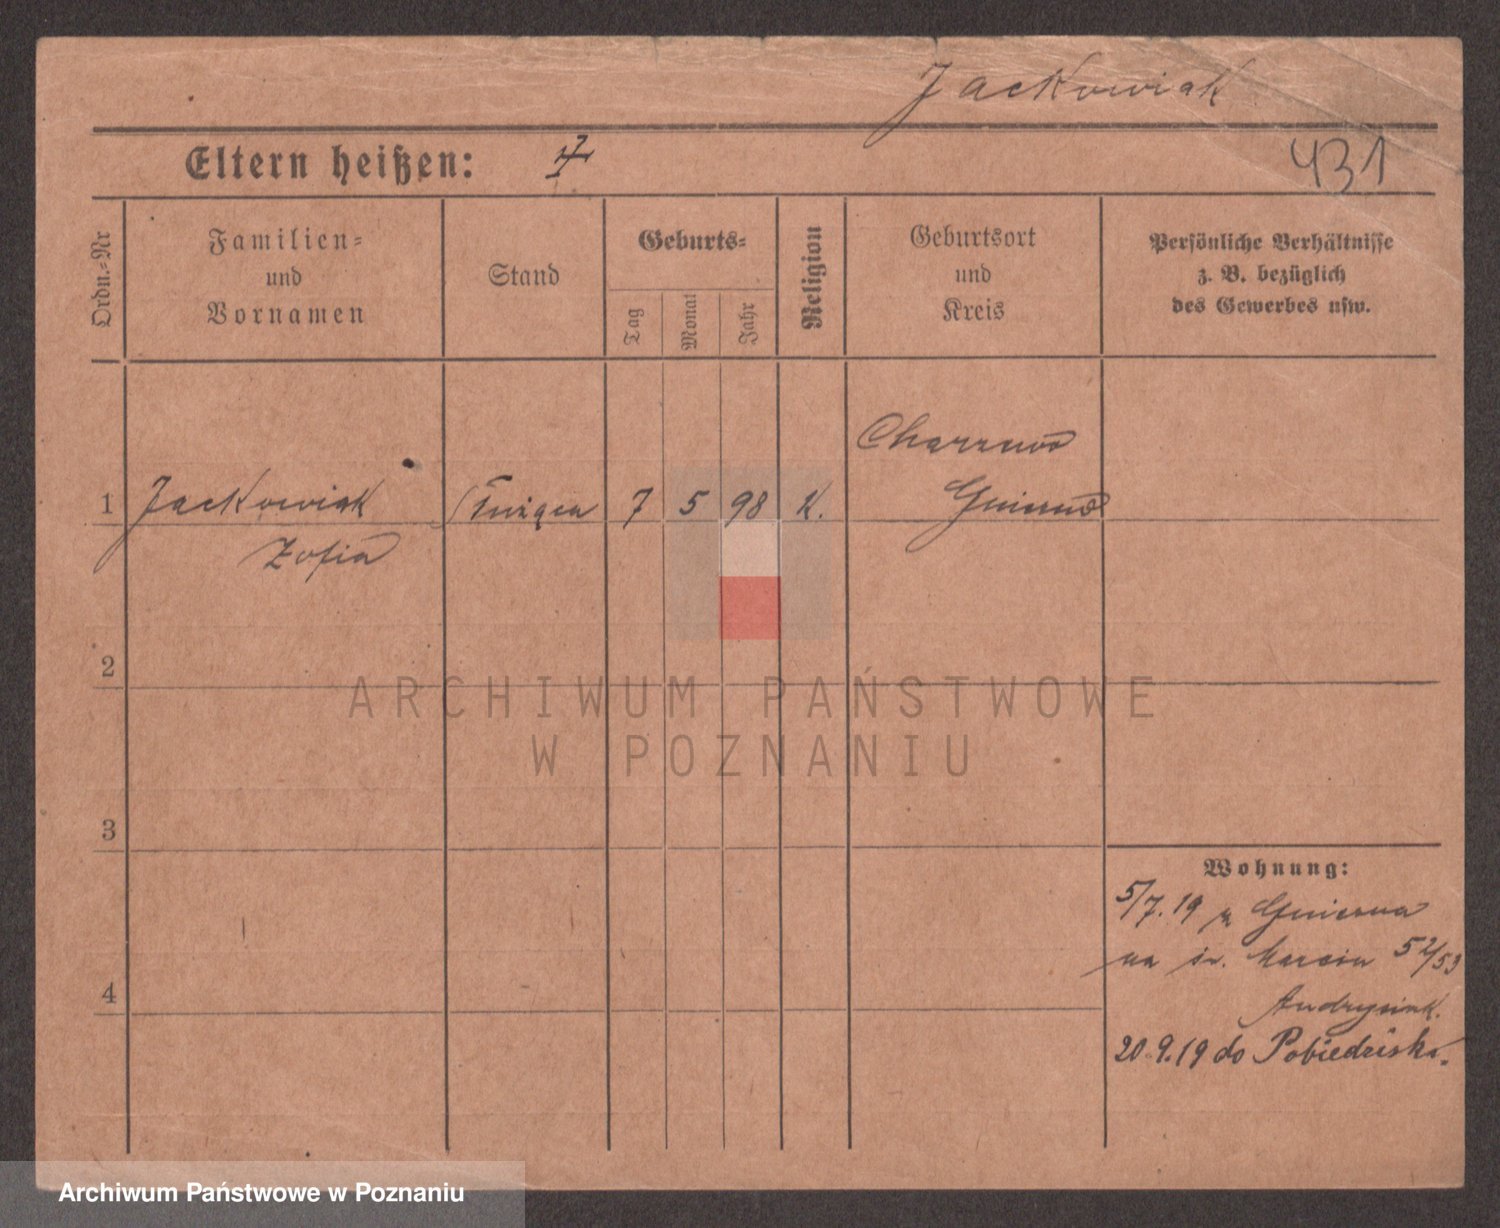 Jackowiak
Eltern heißen:
431
Ordn.-Nr
Familien-
und
Vornamen
Stand
Geburts-
Tag
Monat
Jahr
Religion
Geburtsort
und
Kreis
Persönliche Verhältnisse
z. B. bezüglich
des Gewerbes usw.
Charzewo
1 Jackowiak Służąca 7 5 98 K. Gniezno
Zofia
2
3
4
ARCHIWUM PAŃSTWOWE
W POZNANIU
Wohnung:
5/7.19 z Gniezna
na św. Marcin 52/53
Andrysiak.
20.9.19 do Pobiedziska.
Archiwum Państwowe w Poznaniu